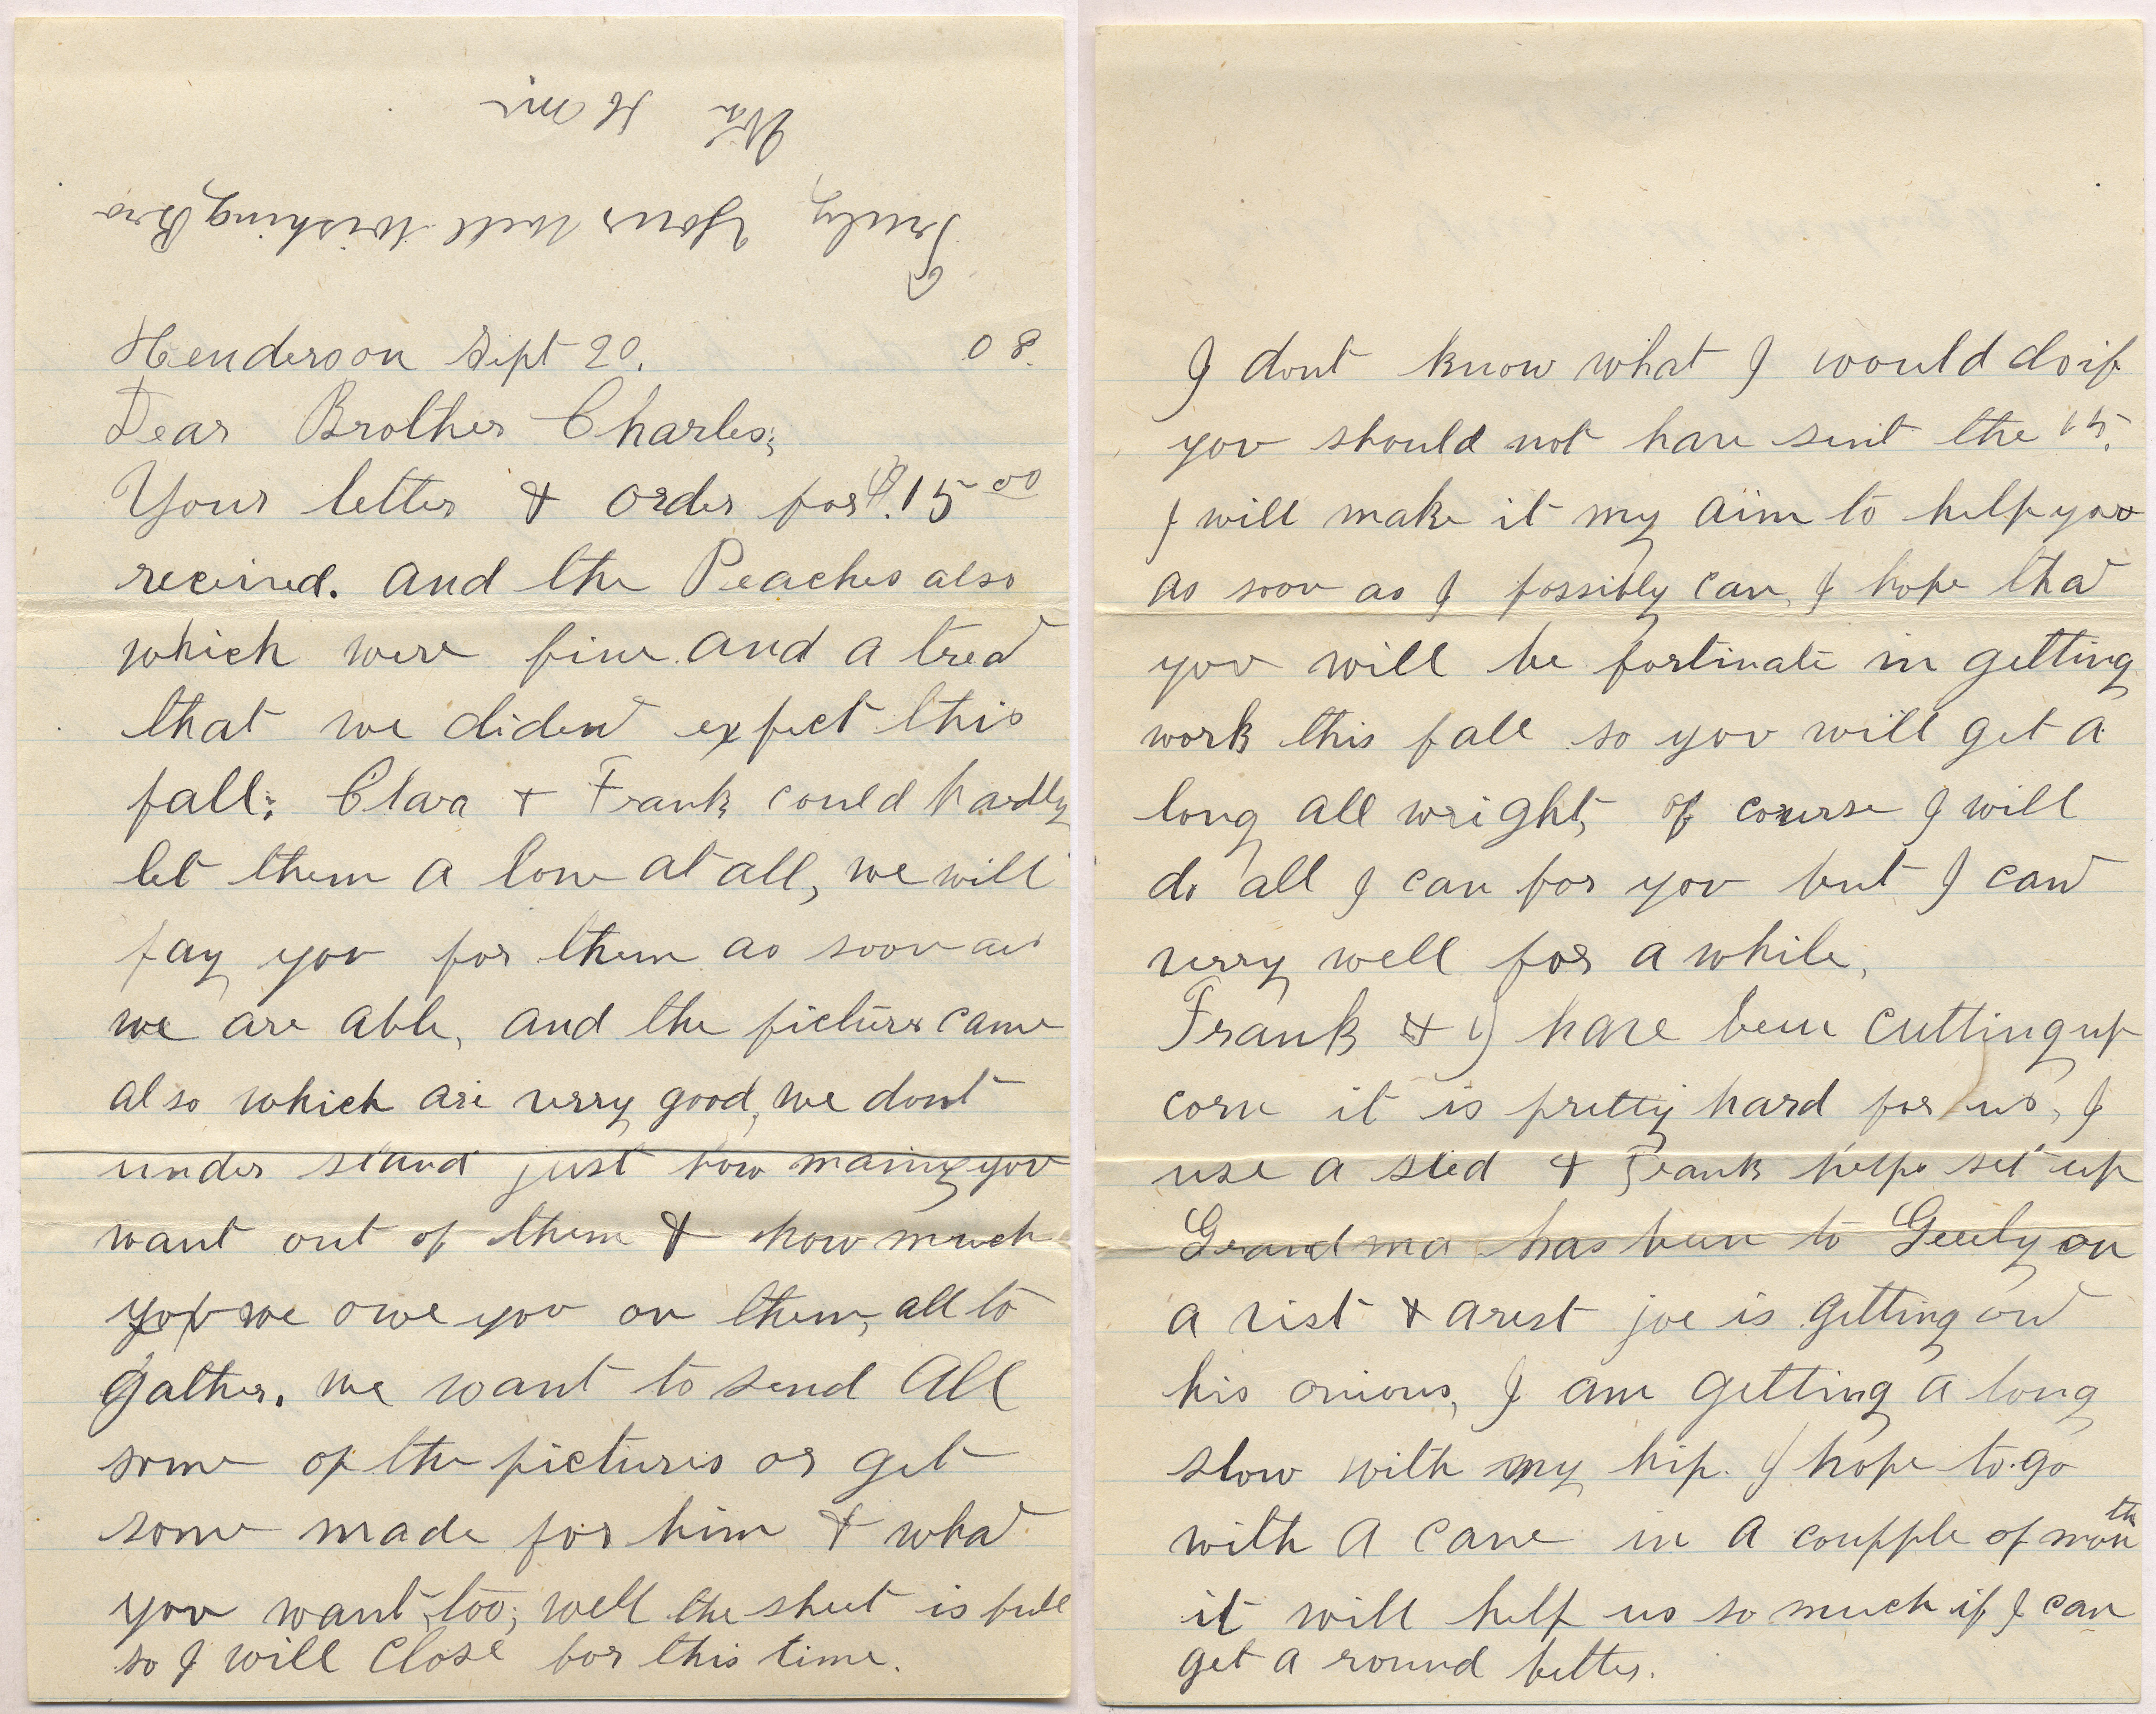 Henderson Sept 20. 08.
Dear Brother Charles;
Your letter & order for $.15 00
received. and the Peaches also
which were fine and a treat
that we dident expect this
fall; Clara + Frank could hardly
let them a lone at all, we will
pay you for them as soon as
we are able, and the pictures came
also which are verry good, we dont
under stand just how mainy you
want out of them & how much
you we owe you on them, all to
gather. we want to send All
some of the pictures or get
some made for him & what
you want, too, well the sheet is full
so I will close for this time.
Truly, Yours Well Wishing Bro
Wm H
I dont know what I would do if
you should not have sent the 15.
I will make it my aim to help you
as soon as I possibly can, I hope that
you will be fortinate in getting
work this fall so you will get a
long all wright, of course I will
do all I can for you but I cant
verry well for a while,
Frank & I have been cutting up
corn it is pretty hard for us, I
use a sled & Frank helps set up
Grand ma has been to on
a vist & arest joe is getting out
his onions, I am getting a long
slow with my hip. I hope to go
with a cane in a coupple of month
it will help us so much if I can
get a round better.